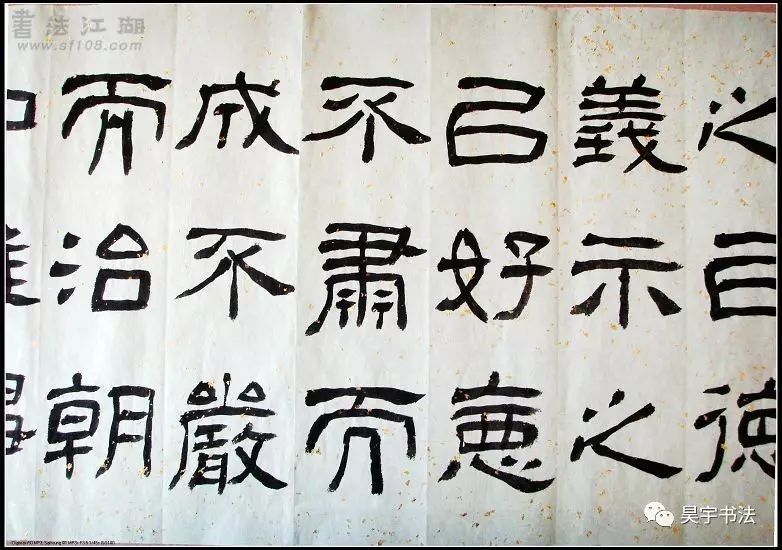 書法江湖
www.sf108.com
之㠯德
義示之
㠯好惡
不肅而
成不嚴
而治朝
昊宇书法